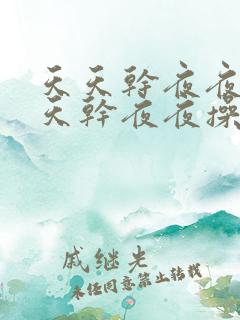 天天幹夜夜
天幹夜夜操
戚继光
未经同意禁止转载